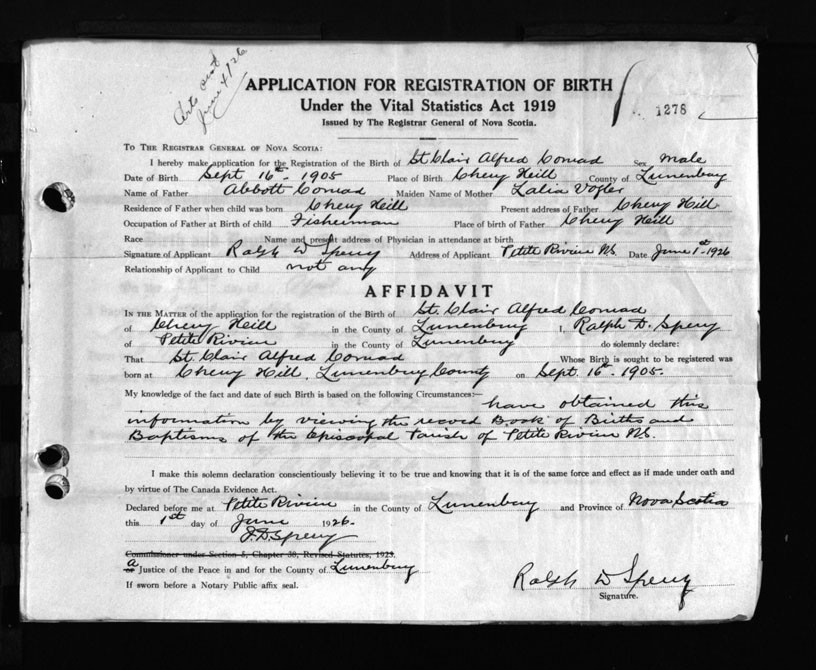 Certs sent
June 4/26
APPLICATION FOR REGISTRATION OF BIRTH
Under the Vital Statistics Act 1919
Issued by The Registrar General of Nova Scotia.
1276
To The Registrar General of Nova Scotia:
I hereby make application for the Registration of the Birth of St Clair Alfred Conrad Sex Male
Date of Birth Sept 16th 1905 Place of Birth Cherry Hill County of Lunenburg
Name of Father Abbott Conrad Maiden Name of Mother Lalia Vogler
Residence of Father when child was born Cherry Hill Present address of Father Cherry Hill
Occupation of Father at Birth of child Fisherman Place of birth of Father Cherry Hill
Race Name and present address of Physician in attendance at birth
Signature of Applicant Ralph D Sperry Address of Applicant Petite Riviere N.S. Date June 1st 1926
Relationship of Applicant to Child not any
AFFIDAVIT
In the Matter of the application for the registration of the Birth of St. Clair Alfred Conrad
of Cherry Hill in the County of Lunenburg I, Ralph D. Sperry
of Petite Riviere in the County of Lunenburg do solemnly declare:
That St. Clair Alfred Conrad Whose Birth is sought to be registered was
born at Cherry Hill, Lunenburg County on Sept. 16th 1905.
My knowledge of the fact and date of such Birth is based on the following Circumstances:— have obtained this
information by viewing the record Book of Births and
Baptisms of the Episcopal Parish of Petite Riviere N.S.
I make this solemn declaration conscientiously believing it to be true and knowing that it is of the same force and effect as if made under oath and
by virtue of The Canada Evidence Act.
Declared before me at Petite Riviere in the County of Lunenburg and Province of Nova Scotia
this 1st day of June 1926.
J.D. Sperry
Commissioner under Section 5, Chapter 38, Revised Statutes, 1923.
or a Justice of the Peace in and for the County of Lunenburg
If sworn before a Notary Public affix seal.
Ralph D Sperry
Signature.